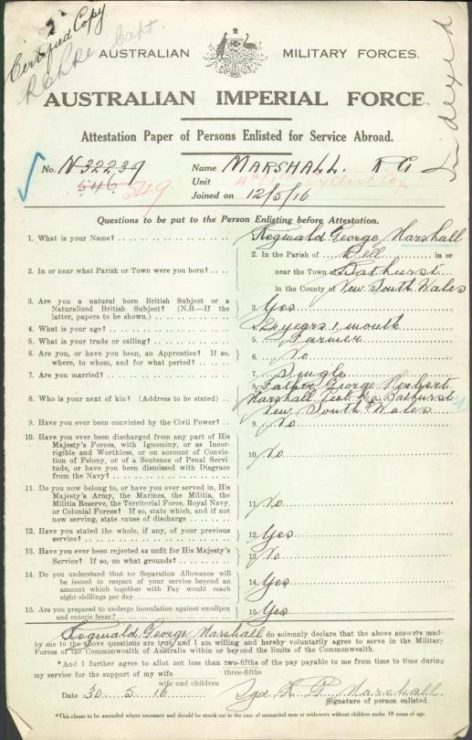 Certified Copy
Indexed
AUSTRALIAN MILITARY FORCES.
AUSTRALIAN IMPERIAL FORCE.
Attestation Paper of Persons Enlisted for Service Abroad.
No. N32239 Name MARSHALL. R G
546 549 Unit
Joined on 12/5/16
Questions to be put to the Person Enlisting before Attestation.
1. What is your Name? Reginald George Marshall
2. In or near what Parish or Town were you born? 2. In the Parish of Kell in or
near the Town Bathurst
in the County of New South Wales
3. Are you a natural born British Subject or a
Naturalized British Subject? (N.B.—If the
latter, papers to be shown.) 3. Yes
4. What is your age? years 1 month
5. What is your trade or calling? 5. Farmer
6. Are you, or have you been, an Apprentice? If so,
where, to whom, and for what period? 6. No
7. Are you married? 7. Single
8. Who is your next of kin? (Address to be stated) Father George Herbert
Marshall Bathurst
New South Wales
9. Have you ever been convicted by the Civil Power? 9. No
10. Have you ever been discharged from any part of His
Majesty's Forces, with Ignominy, or as Incor-
rigible and Worthless, or on account of Convic-
tion of Felony, or of a Sentence of Penal Servi-
tude, or have you been dismissed with Disgrace
from the Navy? 10. No
11. Do you now belong to, or have you ever served in, His
Majesty's Army, the Marines, the Militia, the
Militia Reserve, the Territorial Force, Royal Navy,
or Colonial Forces? If so, state which, and if not
now serving, state cause of discharge 11. No
12. Have you stated the whole, if any, of your previous
service? 12. Yes
13. Have you ever been rejected as unfit for His Majesty's
Service? If so, on what grounds? 13. No
14. Do you understand that no Separation Allowance will
be issued in respect of your service beyond an
amount which together with Pay would reach
eight shillings per day 14. Yes
15. Are you prepared to undergo inoculation against smallpox
and enteric fever? 15. Yes
I Reginald George Marshall do solemnly declare that the above answers made
by me to the above questions are true, and I am willing and hereby voluntarily agree to serve in the Military
Forces of the Commonwealth of Australia within or beyond the limits of the Commonwealth.
*And I further agree to allot not less than two-fifths of the pay payable to me from time to time during
three-fifths
my service for the support of my wife
wife and children
Date 30 5 16 Sgd R G Marshall
Signature of person enlisted.
*This clause to be amended where necessary and should be struck out in the case of unmarried men or widowers without children under 18 years of age.